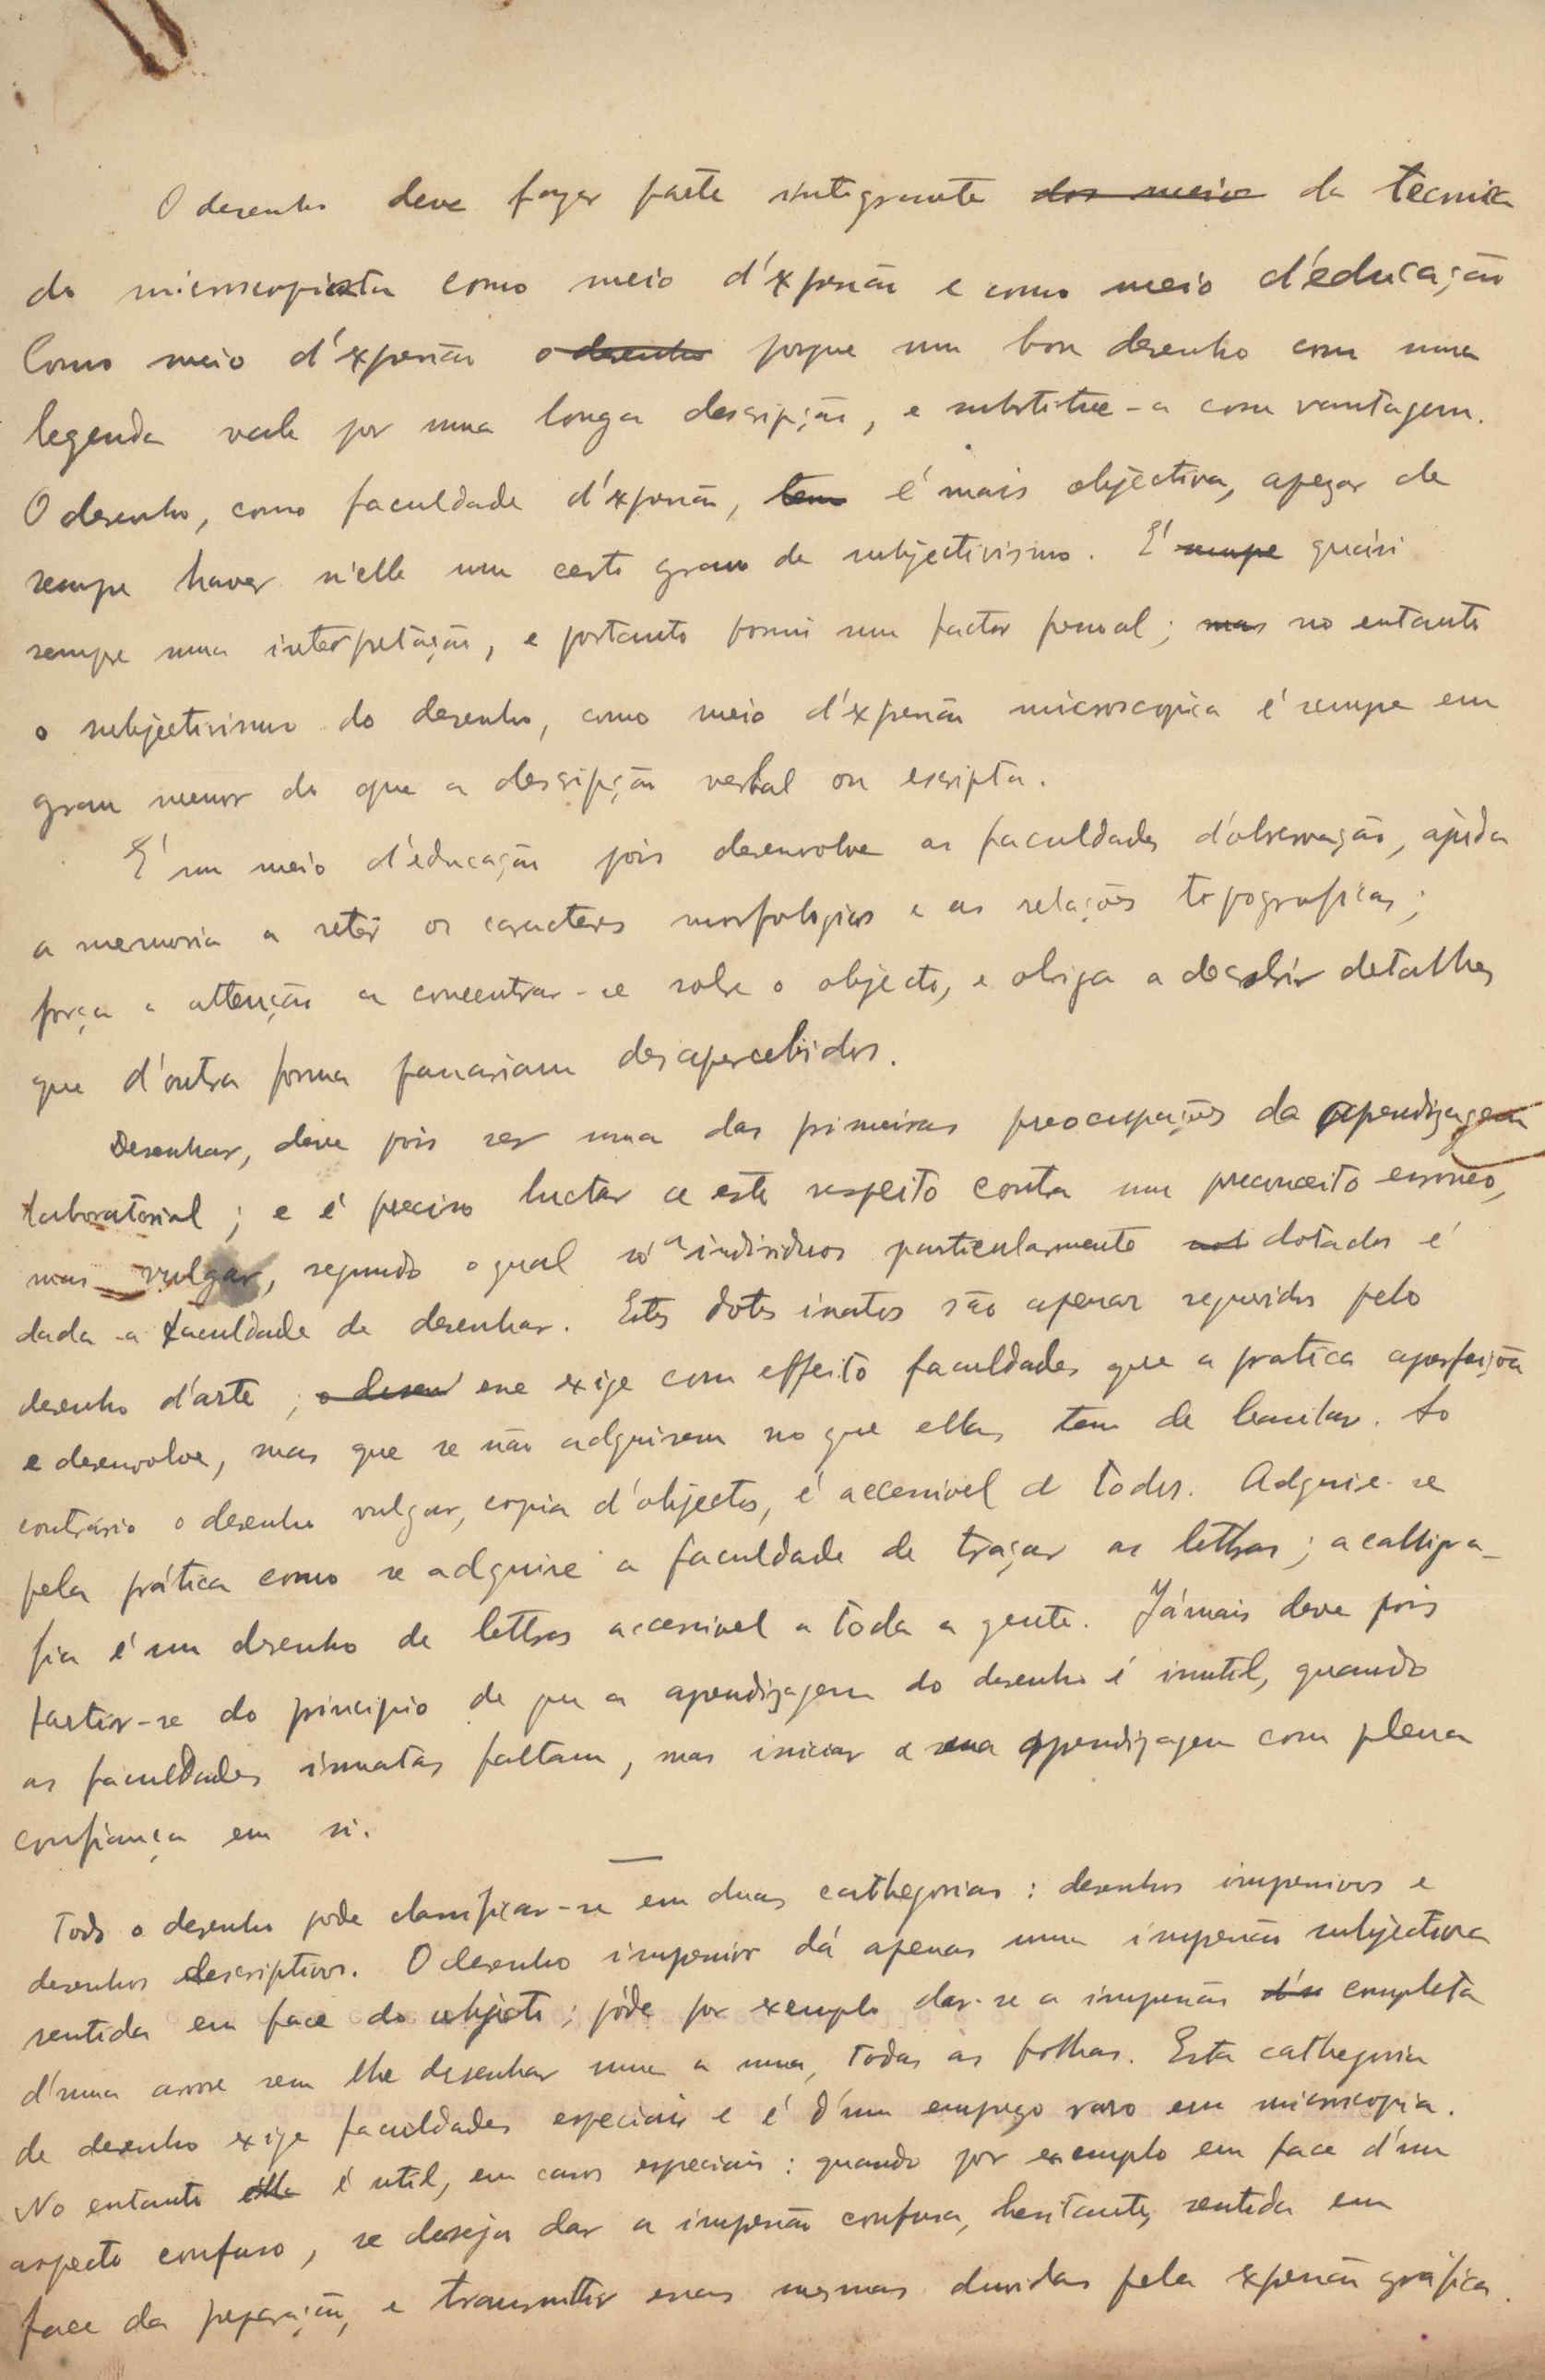 O desenho deve fazer parte integrante dos meios da tecnica
do microscopista como meio d'expressão e como meio d'educação
Como meio d'expressão o desenho porque um bom desenho com uma
legenda vale por uma longa descripção, e substitue-a com vantagem.
O desenho, como faculdade d'expressão, tem é mais objectiva, apezar de
sempre haver n'elle um certo grau de subjectivismo. É sempre quási
sempre uma interpretação, e portanto possui um factor pessoal; mas no entanto
o subjectivismo do desenho, como meio d'expressão microscopica é sempre em
grau menor do que a descripção verbal ou escripta.
É um meio d'educação pois desenvolve as faculdades d'observação, ajuda
a memoria a reter os caracteres morfologicos e as relações topograficas;
força a attenção a concentrar-se sobre o objecto, e obriga a descobrir detalhes
que d'outra forma passariam desapercebidos.
Desenhar, deve pois ser uma das primeiras preocupações da aprendizagem
laboratorial; e é preciso luctar a este respeito contra um preconceito erroneo,
mas vulgar, segundo o qual só a individuos particularmente dotados é
dada a faculdade de desenhar. Estes dotes inatos são apenas requeridos pelo
desenho d'arte; o desen esse exige com effeito faculdades que a pratica aperfeiçôa
e desenvolve, mas que se não adquirem no que ellas tem de basilar. Ao
contrário o desenho vulgar, copia d'objectos, é accessivel a todos. Adquire-se
pela prática como se adquire a faculdade de traçar as lettras; a calligra-
fia é um desenho de lettras accessivel a toda a gente. Jámais deve pois
partir-se do principio de que a aprendizagem do desenho é inutil, quando
as faculdades innatas faltam, mas iniciar a sua aprendizagem com plena
confiança em si.
Todo o desenho pode classificar-se em duas cathegorias: desenhos impressivos e
desenhos descriptivos. O desenho impressivo dá apenas uma impressão subjectiva
sentida em face do objecto; póde por exemplo dar-se a impressão completa
d'uma arvore sem lhe desenhar uma a uma, todas as folhas. Esta cathegoria
de desenho exige faculdades especiais e é d'um emprego raro em microscopia.
No entanto ella é util, em casos especiais: quando por exemplo em face d'um
aspecto confuso, se deseja dar a impressão confusa, hesitante, sentida em
face da preparação, e transmitir essas mesmas duvidas pela expressão gráfica.